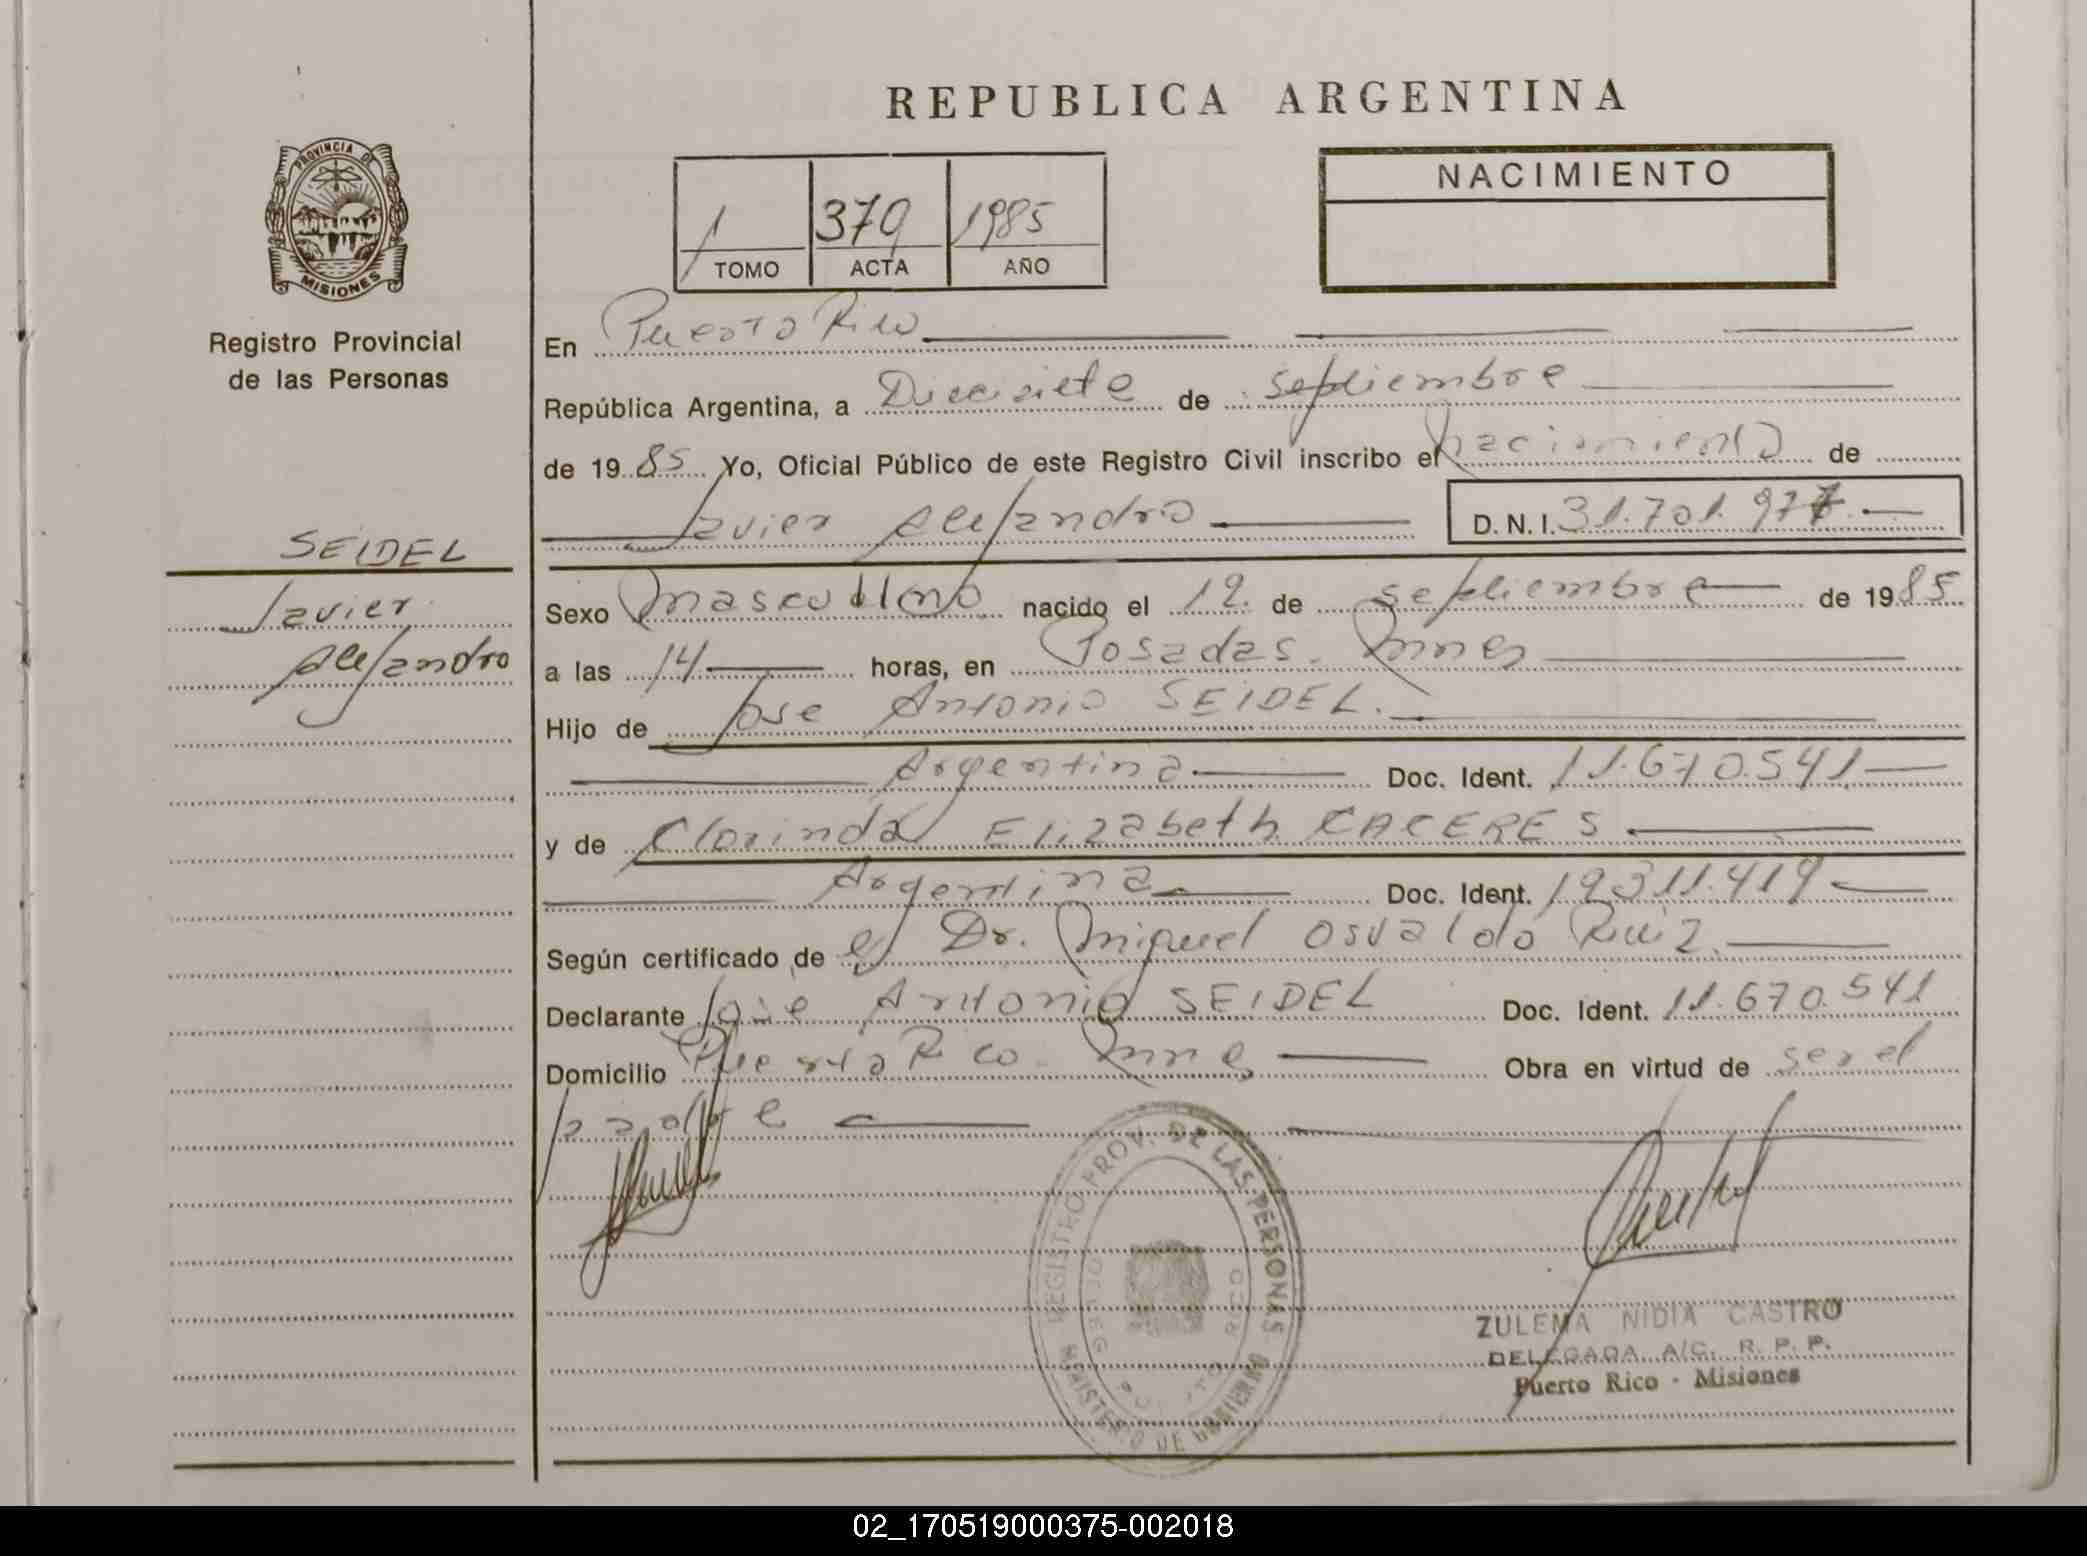 REPUBLICA ARGENTINA
PROVINCIA DE
MISIONES
Registro Provincial
de las Personas
1 379 1985
TOMO ACTA AÑO
NACIMIENTO
En Puerto Rico
República Argentina, a Diecisiete de septiembre
de 19 85 Yo, Oficial Público de este Registro Civil inscribo el nacimiento de
Javier Alejandro D.N.I. 31.701.977.
SEIDEL
Javier
Alejandro
Sexo masculino nacido el 12. de septiembre de 19 85
a las 14 horas, en Posadas. Mnes
Hijo de Jose Antonio SEIDEL.
Argentina Doc. Ident. 11.670.541
y de Clorinda Elizabeth CACERES
Argentina Doc. Ident. 12.311.419
Según certificado de el Dr. Miguel Osvaldo Ruiz.
Declarante José Antonio SEIDEL Doc. Ident. 11.670.541
Domicilio Puerto Rico. Mnes Obra en virtud de ser el
padre
REGISTRO PROV. DE LAS PERSONAS
MINISTERIO DE GOBIERNO
ZULEMA NIDIA CASTRO
DELEGADA A/C. R. P. P.
Puerto Rico - Misiones
02_170519000375-002018